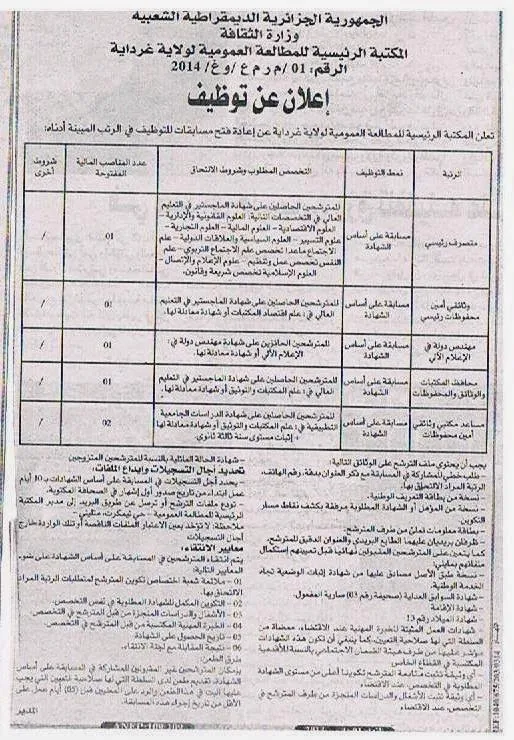 الجمهورية الجزائرية الديمقراطية الشعبية
وزارة الثقافة
المكتبة الرئيسية للمطالعة العمومية لولاية غرداية
الرقم: 01/م ر م ع/وغ/2014
إعلان عن توظيف
تعلن المكتبة الرئيسية للمطالعة العمومية لولاية غرداية عن إعادة فتح مسابقات للتوظيف في الرتب المبينة أدناه:
الرتبة
نمط التوظيف
التخصص المطلوب وشروط الالتحاق
عدد المناصب المالية المفتوحة
شروط أخرى
متصرف رئيسي
مسابقة على أساس الشهادة
للمترشحين الحاصلين على شهادة الماجستير في التعليم
العالي في التخصصات التالية: العلوم القانونية والإدارية -
العلوم الاقتصادية - العلوم المالية - العلوم التجارية -
علوم التسيير - العلوم السياسية والعلاقات الدولية - علم
الاجتماع ماعدا تخصص علم الاجتماع التربوي - علم
النفس تخصص عمل وتنظيم - علوم الإعلام والإتصال -
العلوم الإسلامية تخصص شريعة وقانون.
01
/
وثائقي أمين محفوظات رئيسي
مسابقة على أساس الشهادة
للمترشحين الحاصلين على شهادة الماجستير في التعليم
العالي في: علم اقتصاد المكتبات أو شهادة معادلة لها.
01
/
مهندس دولة في الإعلام الآلي
مسابقة على أساس الشهادة
للمترشحين الحائزين على شهادة مهندس دولة في:
الإعلام الآلي أو شهادة معادلة لها.
01
/
محافظ المكتبات والوثائق والمحفوظات
مسابقة على أساس الشهادة
للمترشحين الحاصلين على شهادة الماجستير في التعليم
العالي في: علم المكتبات والتوثيق أو شهادة معادلة لها.
01
/
مساعد مكتبي وثائقي أمين محفوظات
مسابقة على أساس الشهادة
للمترشحين الحاصلين على شهادة الدراسات الجامعية
التطبيقية في: علم المكتبات والتوثيق أو شهادة معادلة لها
+ إثبات مستوى سنة ثالثة ثانوي.
02
/
يجب أن يحتوي ملف الترشح على الوثائق التالية:
- طلب خطي للمشاركة في المسابقة مع ذكر العنوان بدقة، رقم الهاتف،
الرتبة المراد الالتحاق بها.
- نسخة من بطاقة التعريف الوطنية.
- نسخة من المؤهل أو الشهادة المطلوبة مرفقة بكشف نقاط مسار
التكوين
- بطاقة معلومات تملأ من طرف المترشح.
- ظرفان بريديان عليهما الطابع البريدي والعنوان الدقيق للمترشح.
كما يتعين على المترشحين المقبولين نهائيا قبل تعيينهم إستكمال
ملفاتهم بمايلي:
- نسخة طبق الأصل مصادق عليها من شهادة إثبات الوضعية تجاه
الخدمة الوطنية.
- شهادة السوابق العدلية (صحيفة رقم 03) سارية المفعول.
- شهادة الإقامة
- شهادة الميلاد رقم 13
- شهادات العمل المثبتة للخبرة المهنية عند الاقتضاء، ممضاة من
السلطة التي لها صلاحية التعيين، كما ينبغي أن تكون هذه الشهادات
مؤشر عليها من طرف هيئة الضمان الاجتماعي بالنسبة للأقدمية
المكتسبة في القطاع الخاص
- أي وثيقة تثبت متابعة المترشح تكوينا أعلى من مستوى الشهادة
المطلوبة في التخصص، عند الاقتضاء
- أي وثيقة تثبت الأشغال والدراسات المنجزة من طرف المترشح في
التخصص، عند الاقتضاء
- شهادة الحالة العائلية بالنسبة للمترشحين المتزوجين
تحديد آجال التسجيلات وإيداع الملفات:
- يحدد أجل التسجيلات في المسابقة على أساس الشهادات بـ 10 أيام
عمل ابتداء من تاريخ صدور أول إشهار في الصحافة المكتوبة.
- تودع ملفات الترشح أو ترسل عن طريق البريد إلى مدير المكتبة
الرئيسية للمطالعة العمومية - حي تيمكرت، متليلي
ملاحظة: لا تؤخذ بعين الاعتبار الملفات الناقصة أو تلك الواردة خارج
آجال التسجيلات
معايير الانتقاء:
يتم انتقاء المترشحين في المسابقة على أساس الشهادة على ضوء
المعايير التالية:
01 - ملائمة شعبة اختصاص تكوين المترشح لمتطلبات الرتبة المراد
الالتحاق بها.
02 - التكوين المكمل للشهادة المطلوبة في نفس التخصص.
03 - الأشغال والدراسات المنجزة من قبل المترشح في التخصص.
04 - الخبرة المهنية المكتسبة من قبل المترشح في التخصص.
05 - تاريخ الحصول على الشهادة
06 - نتيجة المقابلة مع لجنة الانتقاء.
طرق الطعن:
بإمكان المترشحين غير المقبولين للمشاركة في المسابقة على أساس
الشهادة تقديم طعن لدى السلطة التي لها صلاحية التعيين التي يجب
عليها البت في هذا الطعن والرد على المعنيين قبل (05) أيام عمل على
الأقل من تاريخ إجراء هذه المسابقة.
المدير